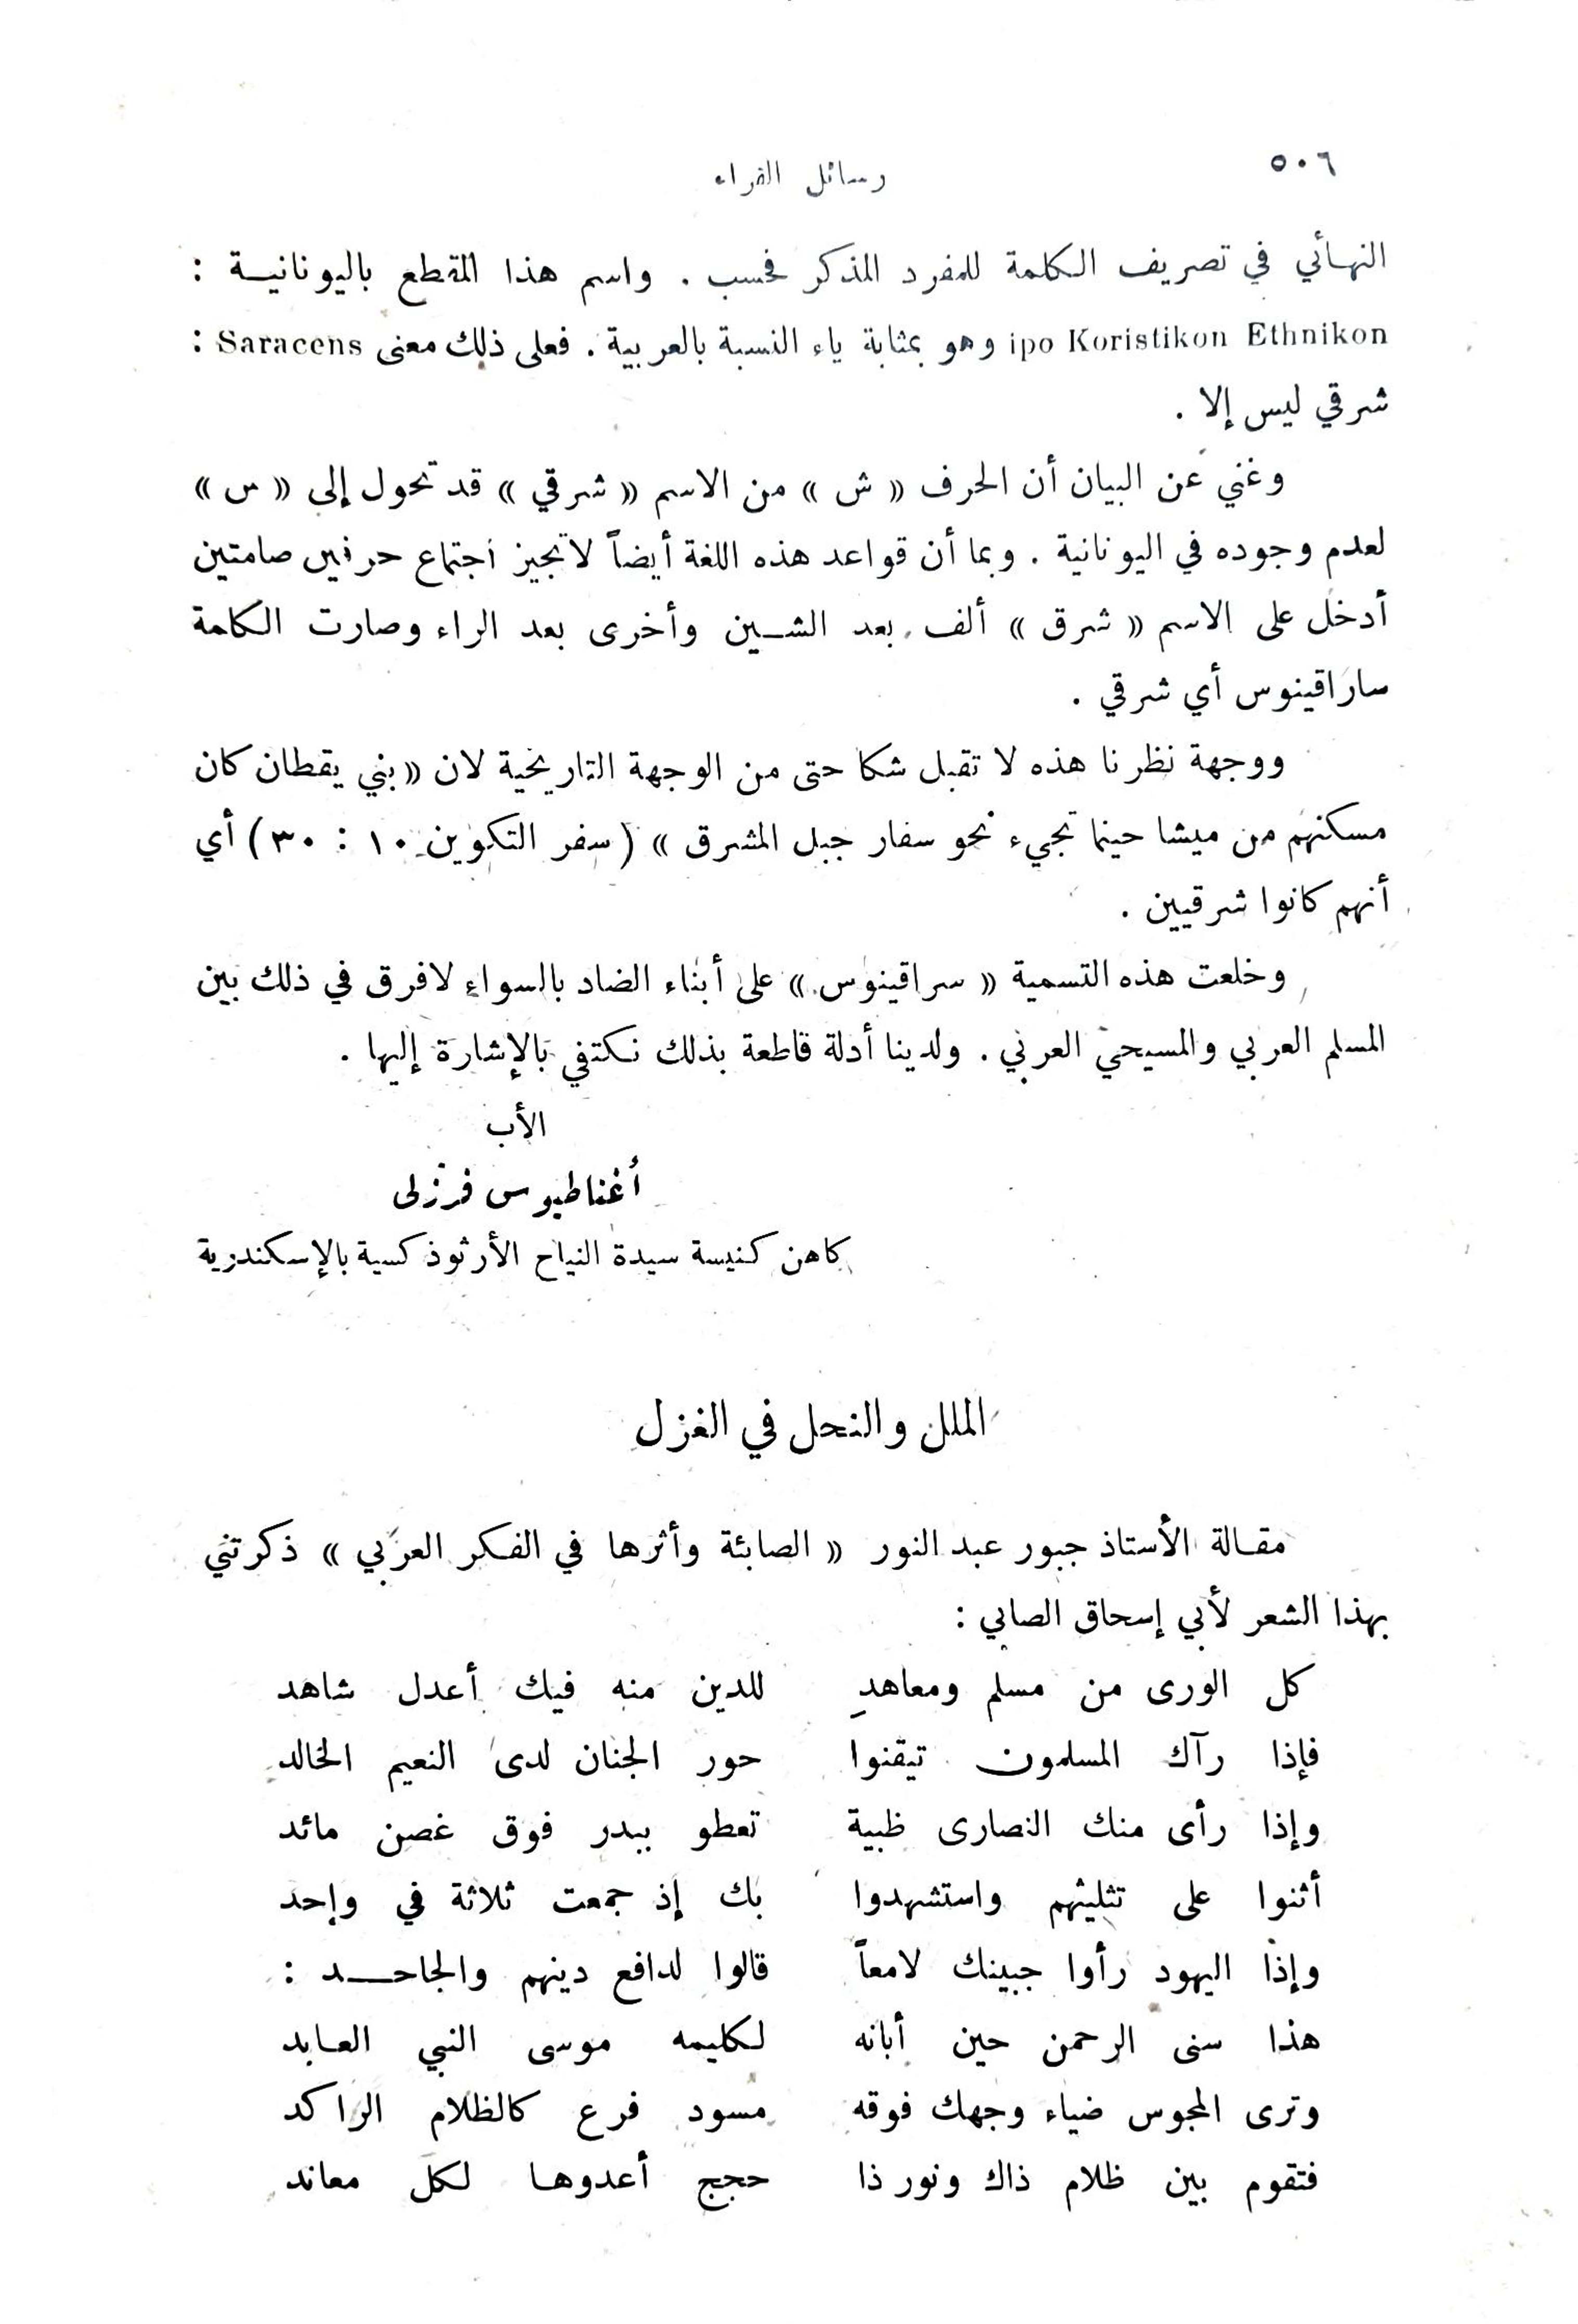 ٥٠٦
رسائل القراء
النهائي في تصريف الكلمة للمفرد المذكر فحسب . واسم هذا المقطع باليونانية :
ipo Koristikon Ethnikon وهو بمثابة ياء النسبة بالعربية . فعلى ذلك معنى Saracens :
شرقي ليس إلا .
وغني عن البيان أن الحرف « ش » من الاسم « شرقي » قد تحول إلى « س »
لعدم وجوده في اليونانية . وبما أن قواعد هذه اللغة أيضاً لاتجيز اجتماع حرفين صامتين
أدخل على الاسم « شرق » ألف بعد الشين وأخرى بعد الراء وصارت الكلمة
ساراقينوس أي شرقي .
ووجهة نظرنا هذه لا تقبل شكا حتى من الوجهة التاريخية لان « بني يقطان كان
مسكنهم من ميشا حينما تجيء نحو سفار جبل المشرق » ( سفر التكوين ١٠ : ٣٠ ) أي
أنهم كانوا شرقيين .
وخلعت هذه التسمية « سراقينوس » على أبناء الضاد بالسواء لافرق في ذلك بين
المسلم العربي والمسيحي العربي . ولدينا أدلة قاطعة بذلك نكتفي بالإشارة إليها .
الأب
أغناطيوس فرزلى
كاهن كنيسة سيدة النياح الأرثوذكسية بالإسكندرية
الملل والنحل في الغزل
مقالة الأستاذ جبور عبد النور « الصابئة وأثرها في الفكر العربي » ذكرتني
بهذا الشعر لأبي إسحاق الصابي :
كل الورى من مسلم ومعاهدِ للدين منه فيك أعدل شاهد
فإذا رآك المسلمون تيقنوا حور الجنان لدى النعيم الخالد
وإذا رأى منك النصارى ظبية تعطو ببدر فوق غصن مائد
أثنوا على تثليثهم واستشهدوا بك إذ جمعت ثلاثة في واحد
وإذا اليهود رأوا جبينك لامعاً قالوا لدافع دينهم والجاحد :
هذا سنى الرحمن حين أبانه لكليمه موسى النبي العابد
وترى المجوس ضياء وجهك فوقه مسود فرع كالظلام الراكد
فتقوم بين ظلام ذاك ونور ذا حجج أعدوها لكل معاند